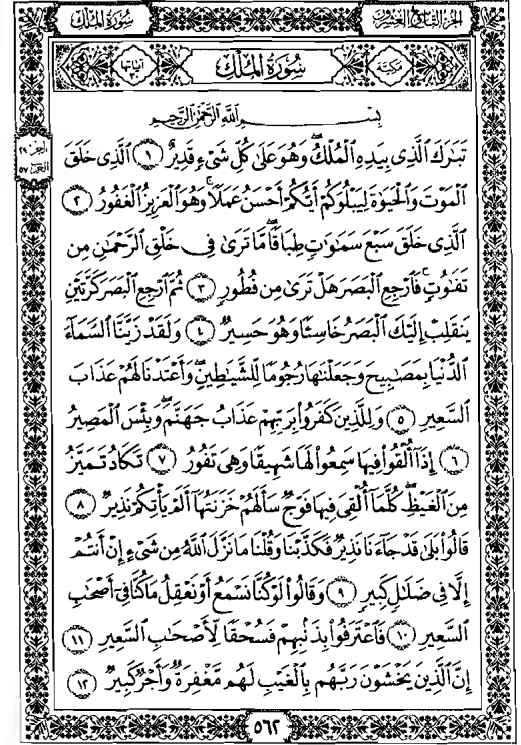 سُورَةُ المُلْكِ
الجزء التاسع والعشرون
آياتها ٣٠
سُورَةُ المُلْكِ
مكية
بِسْمِ اللَّهِ الرَّحْمَٰنِ الرَّحِيمِ
تَبَٰرَكَ ٱلَّذِى بِيَدِهِ ٱلْمُلْكُ وَهُوَ عَلَىٰ كُلِّ شَىْءٍ قَدِيرٌ ١ ٱلَّذِى خَلَقَ
ٱلْمَوْتَ وَٱلْحَيَوٰةَ لِيَبْلُوَكُمْ أَيُّكُمْ أَحْسَنُ عَمَلًا ۚ وَهُوَ ٱلْعَزِيزُ ٱلْغَفُورُ ٢
ٱلَّذِى خَلَقَ سَبْعَ سَمَٰوَٰتٍ طِبَاقًا ۖ مَّا تَرَىٰ فِى خَلْقِ ٱلرَّحْمَٰنِ مِن
تَفَٰوُتٍ ۖ فَٱرْجِعِ ٱلْبَصَرَ هَلْ تَرَىٰ مِن فُطُورٍ ٣ ثُمَّ ٱرْجِعِ ٱلْبَصَرَ كَرَّتَيْنِ
يَنقَلِبْ إِلَيْكَ ٱلْبَصَرُ خَاسِئًا وَهُوَ حَسِيرٌ ٤ وَلَقَدْ زَيَّنَّا ٱلسَّمَآءَ
ٱلدُّنْيَا بِمَصَٰبِيحَ وَجَعَلْنَٰهَا رُجُومًا لِّلشَّيَٰطِينِ ۖ وَأَعْتَدْنَا لَهُمْ عَذَابَ
ٱلسَّعِيرِ ٥ وَلِلَّذِينَ كَفَرُوا۟ بِرَبِّهِمْ عَذَابُ جَهَنَّمَ ۖ وَبِئْسَ ٱلْمَصِيرُ
٦ إِذَآ أُلْقُوا۟ فِيهَا سَمِعُوا۟ لَهَا شَهِيقًا وَهِىَ تَفُورُ ٧ تَكَادُ تَمَيَّزُ
مِنَ ٱلْغَيْظِ ۖ كُلَّمَآ أُلْقِىَ فِيهَا فَوْجٌ سَأَلَهُمْ خَزَنَتُهَآ أَلَمْ يَأْتِكُمْ نَذِيرٌ ٨
قَالُوا۟ بَلَىٰ قَدْ جَآءَنَا نَذِيرٌ فَكَذَّبْنَا وَقُلْنَا مَا نَزَّلَ ٱللَّهُ مِن شَىْءٍ إِنْ أَنتُمْ
إِلَّا فِى ضَلَٰلٍ كَبِيرٍ ٩ وَقَالُوا۟ لَوْ كُنَّا نَسْمَعُ أَوْ نَعْقِلُ مَا كُنَّا فِىٓ أَصْحَٰبِ
ٱلسَّعِيرِ ١٠ فَٱعْتَرَفُوا۟ بِذَنۢبِهِمْ فَسُحْقًا لِّأَصْحَٰبِ ٱلسَّعِيرِ ١١
إِنَّ ٱلَّذِينَ يَخْشَوْنَ رَبَّهُم بِٱلْغَيْبِ لَهُم مَّغْفِرَةٌ وَأَجْرٌ كَبِيرٌ ١٢
الجزء ٢٩
الحزب ٥٧
٥٦٢